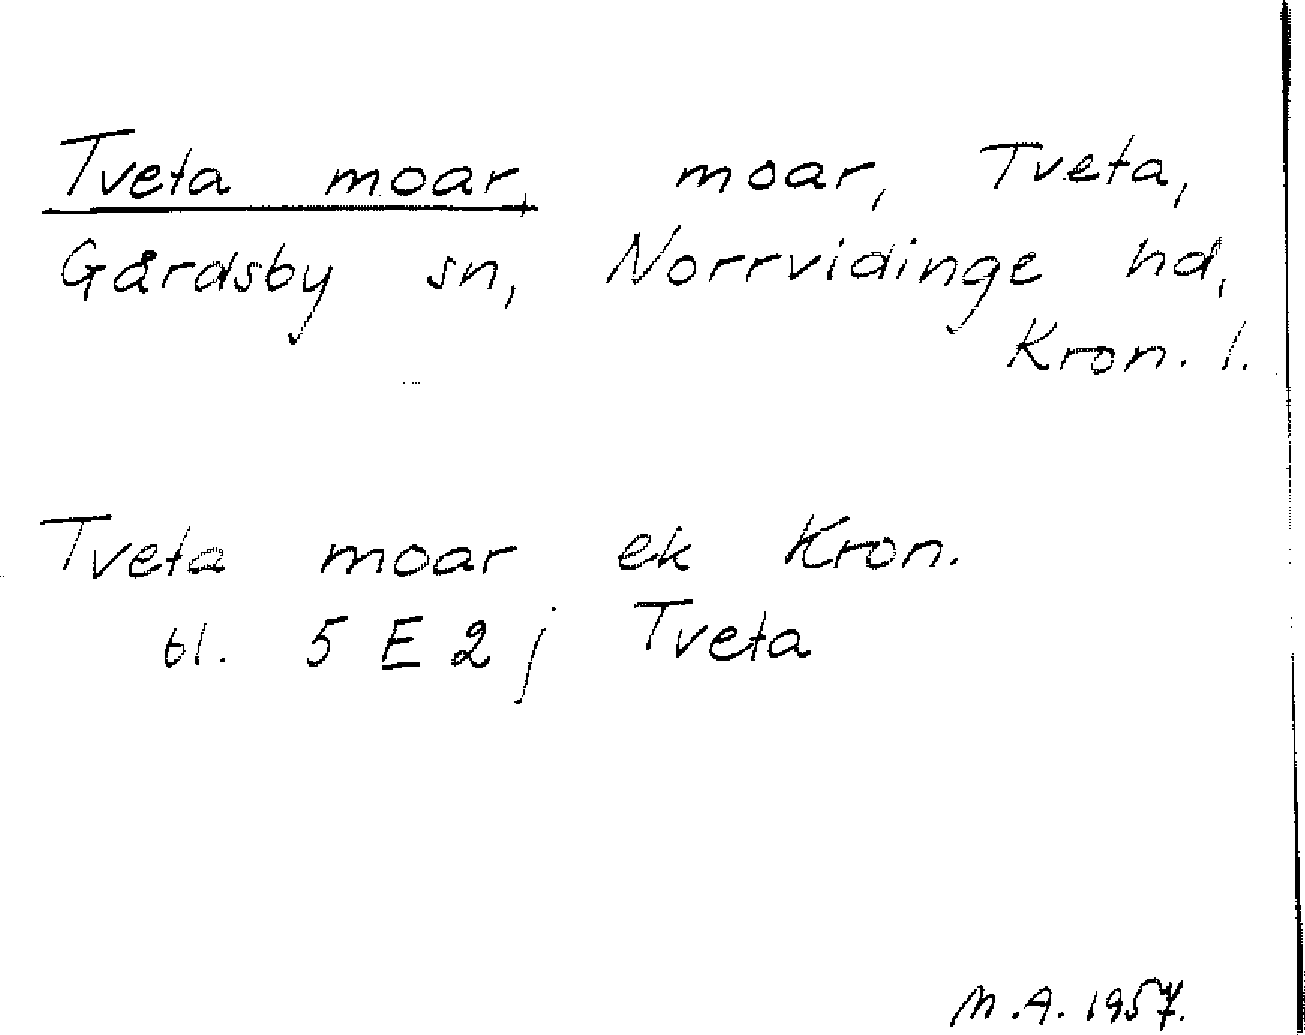 Tveta moar, moar, Tveta,
Gårdsby sn, Norrvidinge hd,
Kron. l.
Tveta moar ek Kron.
bl. 5 E 2 j Tveta
M.A. 1957.